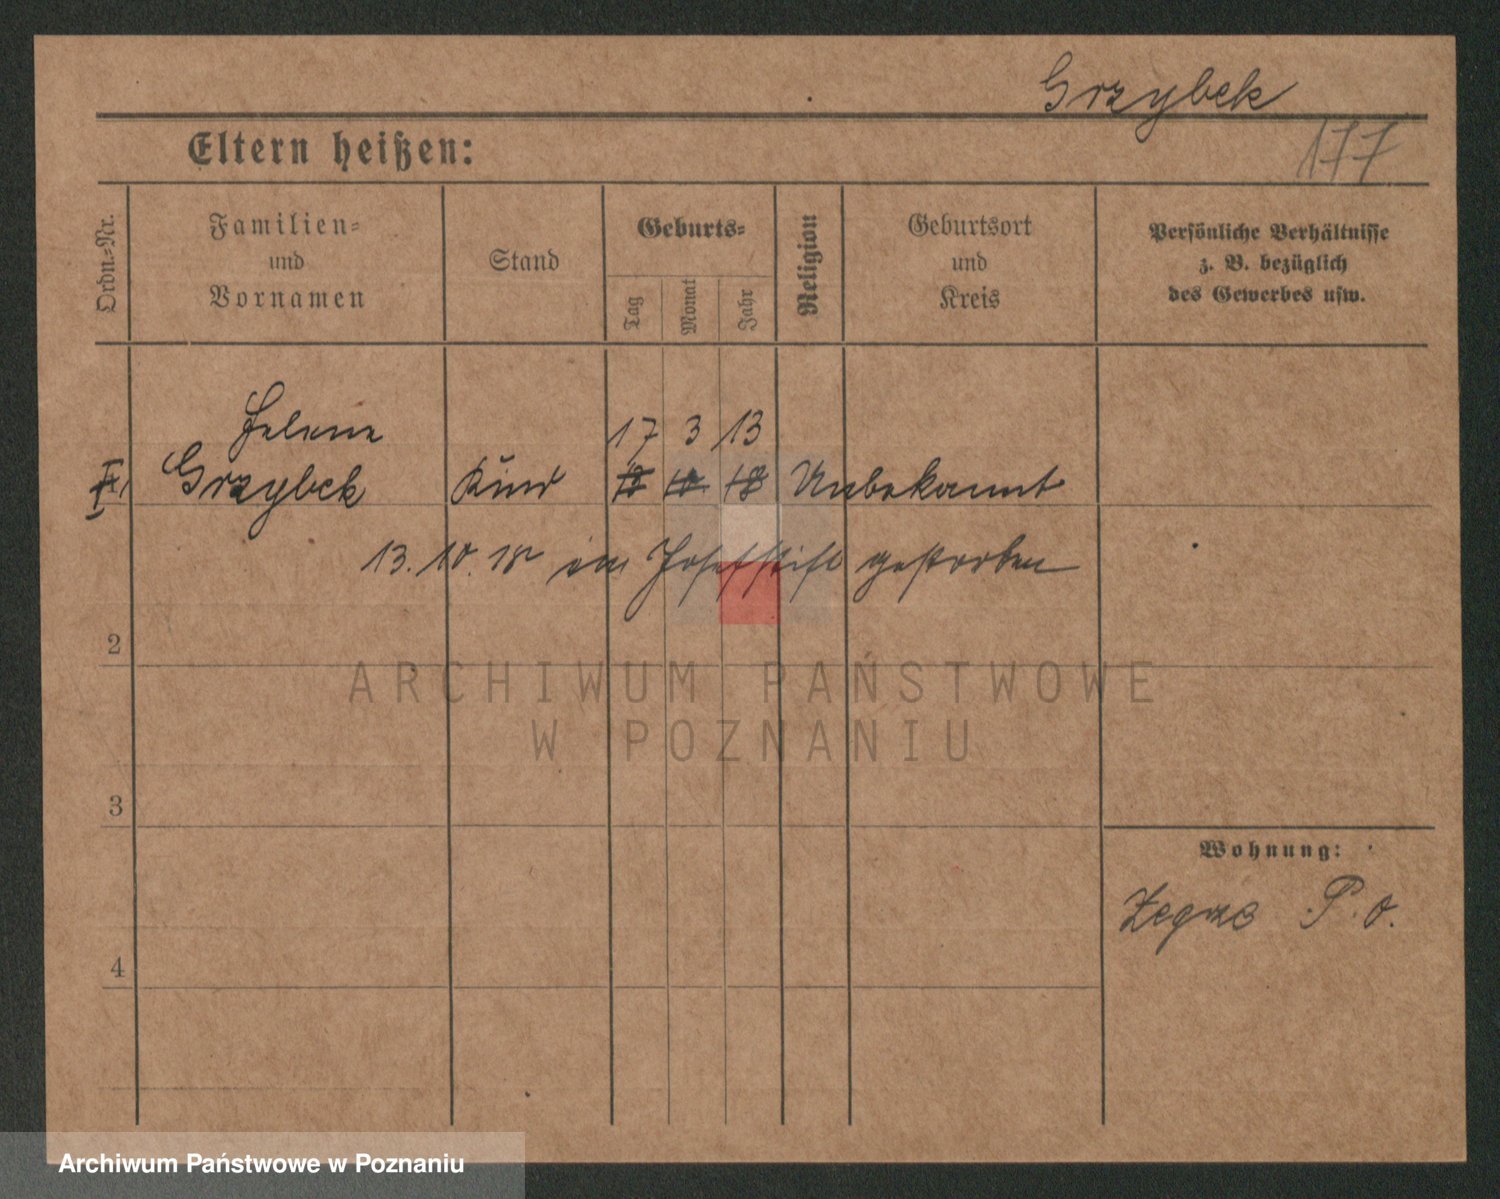 Grzybek
177
Eltern heißen:
Ordn.-Nr.
Familien-
und
Vornamen
Stand
Geburts-
Tag
Monat
Jahr
Religion
Geburtsort
und
Kreis
Persönliche Verhältnisse
z. B. bezüglich
des Gewerbes usw.
Helene 17 3 13
Grzybek Kind Unbekannt
13. 10. 18 im Josefstift gestorben
2
3
4
Wohnung:
Zegrze P. O.
ARCHIWUM PAŃSTWOWE
W POZNANIU
Archiwum Państwowe w Poznaniu